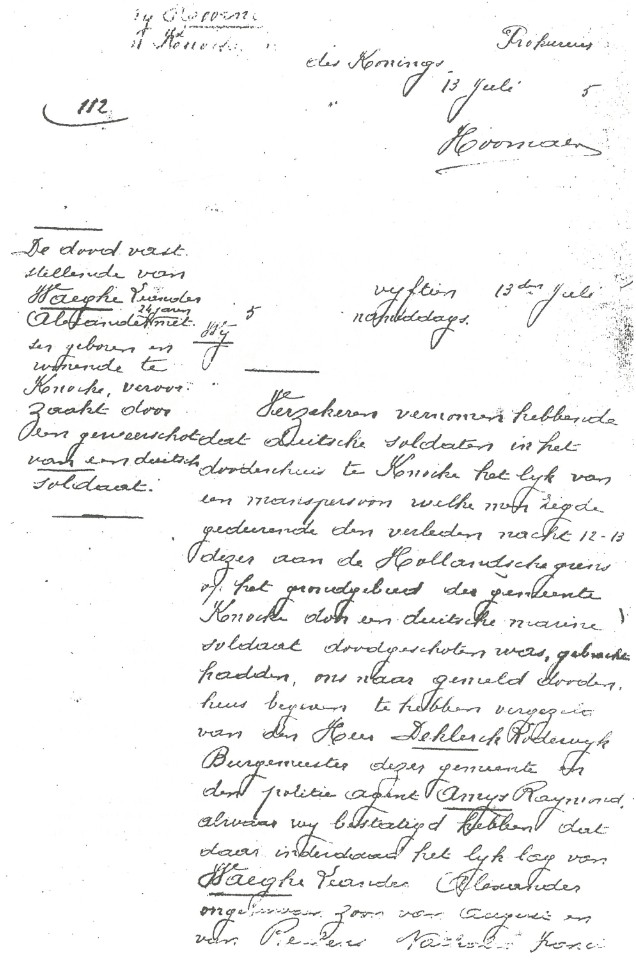 Prokureur
des Konings
13 Juli 5
112
De dood vast
stellende van
Waeghe Leander
24 jaren
Alexander met
ser geboren en
wonende te
Knocke, veroor
zaakt door
een geweerschot
van een duitsch
soldaat.
5
Wij
vyftien 13den Juli
namiddags.
Verzekeren vernomen hebbende
dat duitsche soldaten in het
doodenhuis te Knocke het lyk van
een manspersoon welke men zegde
gedurende den verleden nacht 12-13
dezer aan de Hollandsche grens
op het grondgebied der gemeente
Knocke door een duitsche marine
soldaat doodgeschoten was, gebracht
hadden, ons naar gemeld dooden
huis begeven te hebben vergezeld
van den Heer Deklerck Lodewyk
Burgemeester dezer gemeente en
den politie agent Amys Raymond,
alwaar wy bestatigd hebben dat
daar inderdaad het lyk lag van
Waeghe Leander Alexander
zoon van August en
van